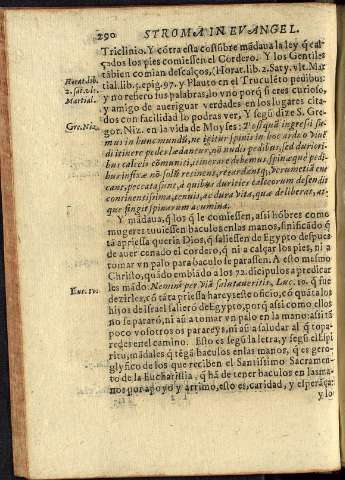 290 STROMA IN EVANGEL.
Triclinio. Y cótra esta costúbre mãdaua la ley q̃ cal-
çados los pies comiessen el Cordero. Y los Gentiles
tãbien comian descalços, (Horat. lib. 2. Saty. vlt. Mar
tial. lib. 3. epig. 97. y Plauto en el Truculẽto pedibus:
y no refiero sus palabras, lo vno porq̃ si eres curioso,
y amigo de aueriguar verdades en los lugares cita-
dos con facilidad lo podras ver, Y segũ dize S. Gre-
gor. Niz. en la vida de Moyses: Postquã ingressi su-
mus in hunc mundũ, ne igitur spinis in hoc
di itinere pedes lædantur, nõ nudis pedibus, sed duriori-
bus calceis cõmuniti, itinerare debemus, spinæque pedi-
bus infixæ nõ solũ retinent, retardantq;, verumetiã ene
cant, peccata sunt, à quibus duricies calceorum defendit
continentissima, tenuis, ac dura vita, quæ deliberat, at-
que fingit spinarum acumina.
Y mãdaua, q̃ los q̃ le comiessen, assi hõbres como
mugeres tuuiessen baculos en las manos, sinificãdo q̃
tã apriessa queria Dios, q̃ saliessen de Egypto despues
de auer cenado el cordero, q̃ ni a calçar los pies, ni a
tomar vn palo para baculo se parassen. A esto mismo
Christo, quãdo embiádo a los 72. dicipulos a predicar
les mãdo. Neminẽ per viã salutaueritis, Luc. 10. q̃ fue
dezirles, cõ tãta priessa hareys este oficio, cõ quãta los
hijos de israel saliero de Egypto, porq̃ assi como ellos
no se pararõ, ni aũ a tomar vn palo en la mano: assi tã
poco vosotros os parareys, ni aũ a saludar al q̃ topa-
redes en el camino. Esto es segũ la letra, y segũ el Espi
ritu, mãdales q̃ tẽgã baculos en las manos, q̃ es gero-
glyfico de los que reciben el Santissimo Sacramen-
to de la Eucharistia, q̃ hã de tener baculos en las ma-
nos por apoyo y arrimo, esto es, caridad, y esperãça:
y lo
Horat. lib.
2. sat. vlt.
Martial.
Gre. Niz.
Luc. 10.